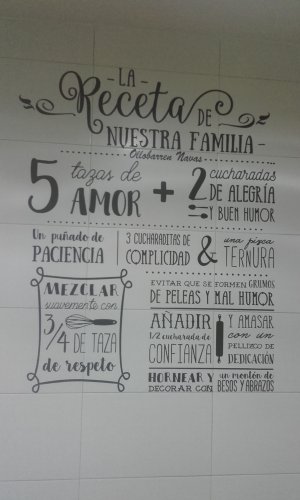 - LA -
Receta DE
NUESTRA FAMILIA -
Ollobarren Navas
5 tazas de AMOR + 2 cucharadas DE ALEGRÍA Y BUEN HUMOR
Un puñado de PACIENCIA
3 CUCHARADITAS DE COMPLICIDAD & una pizca TERNURA
MEZCLAR
suavemente con
3/4 DE TAZA
de respeto
EVITAR QUE SE FORMEN GRUMOS
DE PELEAS Y MAL HUMOR
AÑADIR
1/2 cucharada de
CONFIANZA
Y AMASAR
con un
PELLIZCO DE
DEDICACIÓN
HORNEAR Y
DECORAR CON
un montón de
BESOS Y ABRAZOS